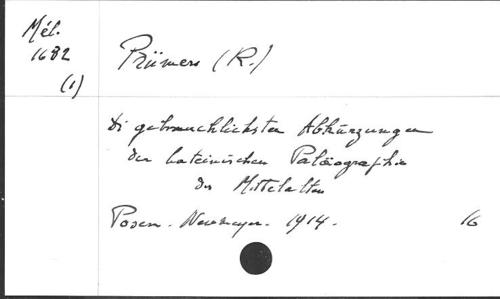 Mél.
1682
(1)
Prümers (R.)
Di gebrauchlichsten Abkürzungen
der lateinischen Paläographie
des Mittelalters
Posen. Neumeyer. 1914. 16